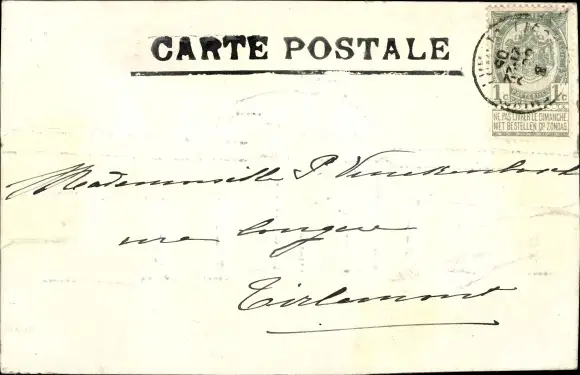 CARTE POSTALE
1c 1c
NE PAS LIVRER LE DIMANCHE
NIET BESTELLEN OP ZONDAG
Mademoiselle P.
rue longue
Tirlemont